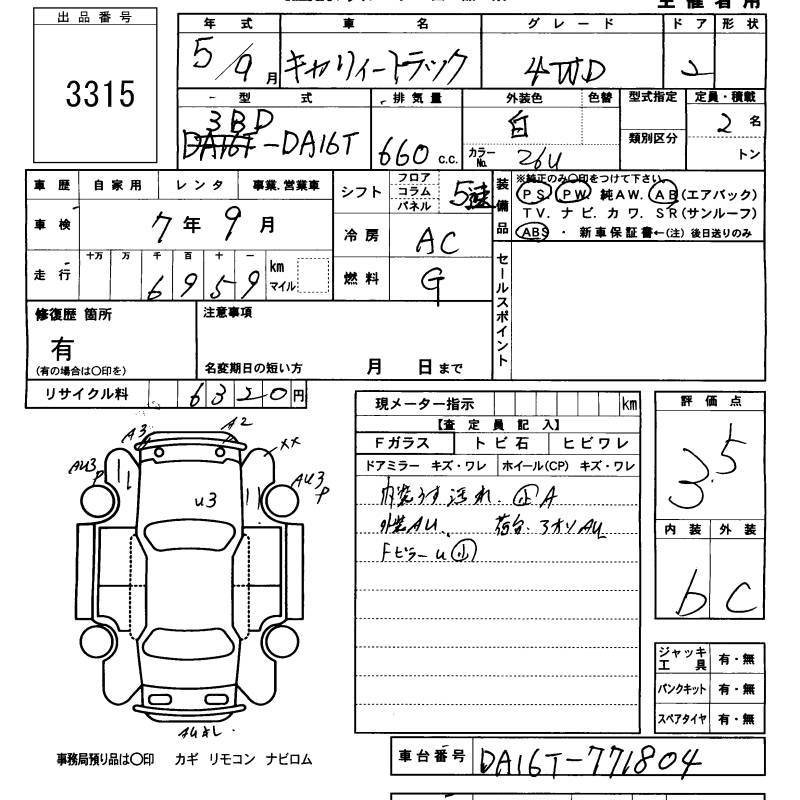 主催者用
出品番号
3315
年式 車名 グレード ドア 形状
5/9月 キャリィートラック 4WD 2
型式 排気量 外装色 色替 型式指定 定員・積載
3BD
DA16T-DA16T 660 c.c. 白 2名
類別区分
カラーNo. 26U トン
車歴 自家用 レンタ 事業.営業車
車検 7年9月
走行 十万 万 千 百 十 一
6959 km マイル
シフト フロア コラム パネル 5速
冷房 AC
燃料 G
装備品
※純正のみ〇印をつけて下さい。
PS PW. 純AW. AB(エアバック)
TV. ナビ. カワ. SR(サンルーフ)
ABS ・ 新車保証書←(注) 後日送りのみ
セールスポイント
修復歴 箇所
有
(有の場合は〇印を)
注意事項
名変期日の短い方 月 日まで
リサイクル料 6320円
現メーター指示 km
【査定員記入】
Fガラス トビ石 ヒビワレ
ドアミラー キズ・ワレ ホイール(CP) キズ・ワレ
内装うす汚れ. 小A
外装AU. 荷台. 3方ソAU
Fピラーu小
評価点
3.5
内装 外装
b C
A3 A2 XX
AU3 P AU3 P
U3
ジャッキ 工具 有・無
パンクキット 有・無
スペアタイヤ 有・無
事務局預り品は〇印 カギ リモコン ナビロム
車台番号 DA16T-771804